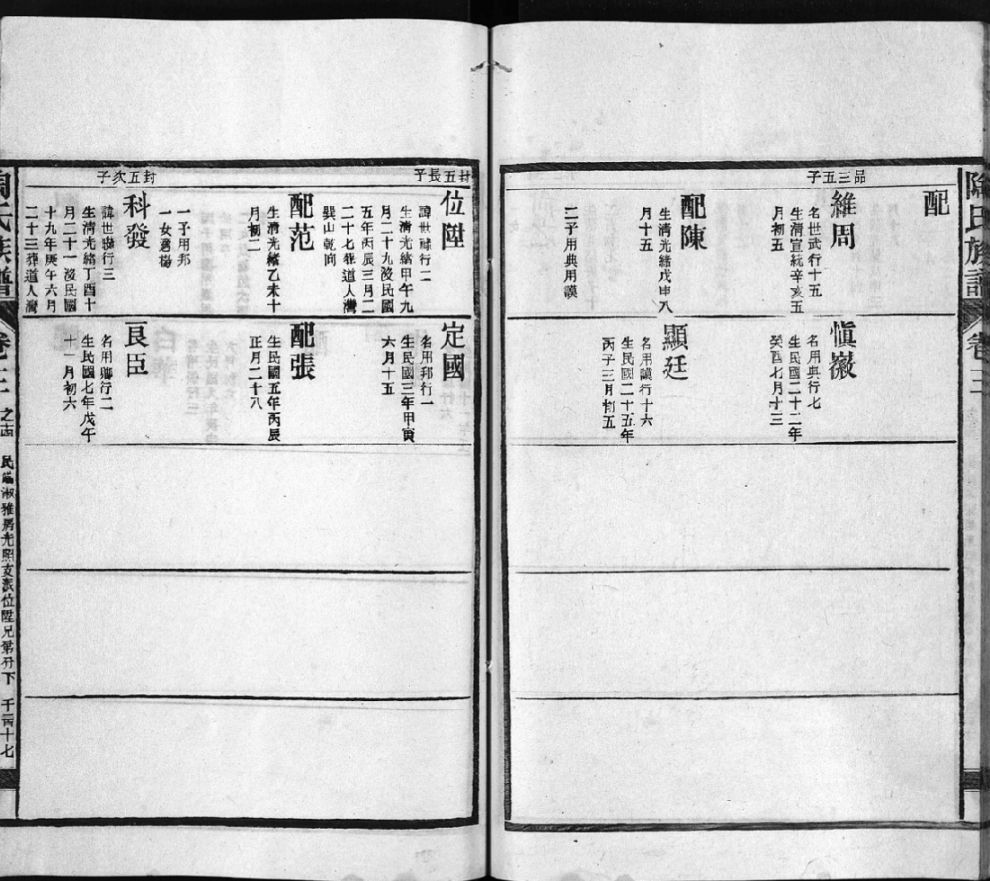 陶氏族譜
卷三
品三五子
配
維周
名世武行十五
生清宣統辛亥五
月初五
配陳
生清光緒戊申八
月十五
二子用典用謨
慎徽
名用典行七
生民國二十二年
癸酉七月十三
顯廷
名用謨行十六
生民國二十五年
丙子三月初五
封五長子
位陞
諱世 行二
生清光緒甲午九
月二十九沒民國
五年丙辰三月二
二十七葬道人灣
巽山乾向
配范
生清光緒乙未十
月初二
封五次子
科發
諱世聯行三
生清光緒丁酉十
月二十一沒民國
十九年庚午六月
二十三葬道人灣
一子用邦
一女適楊
定國
名用邦行一
生民國三年甲寅
六月十五
配張
生民國五年丙辰
正月二十八
良臣
名用卿行二
生民國七年戊午
十一月初六
陶氏族譜
卷三
淑雅房光照支派位陞兄弟分下